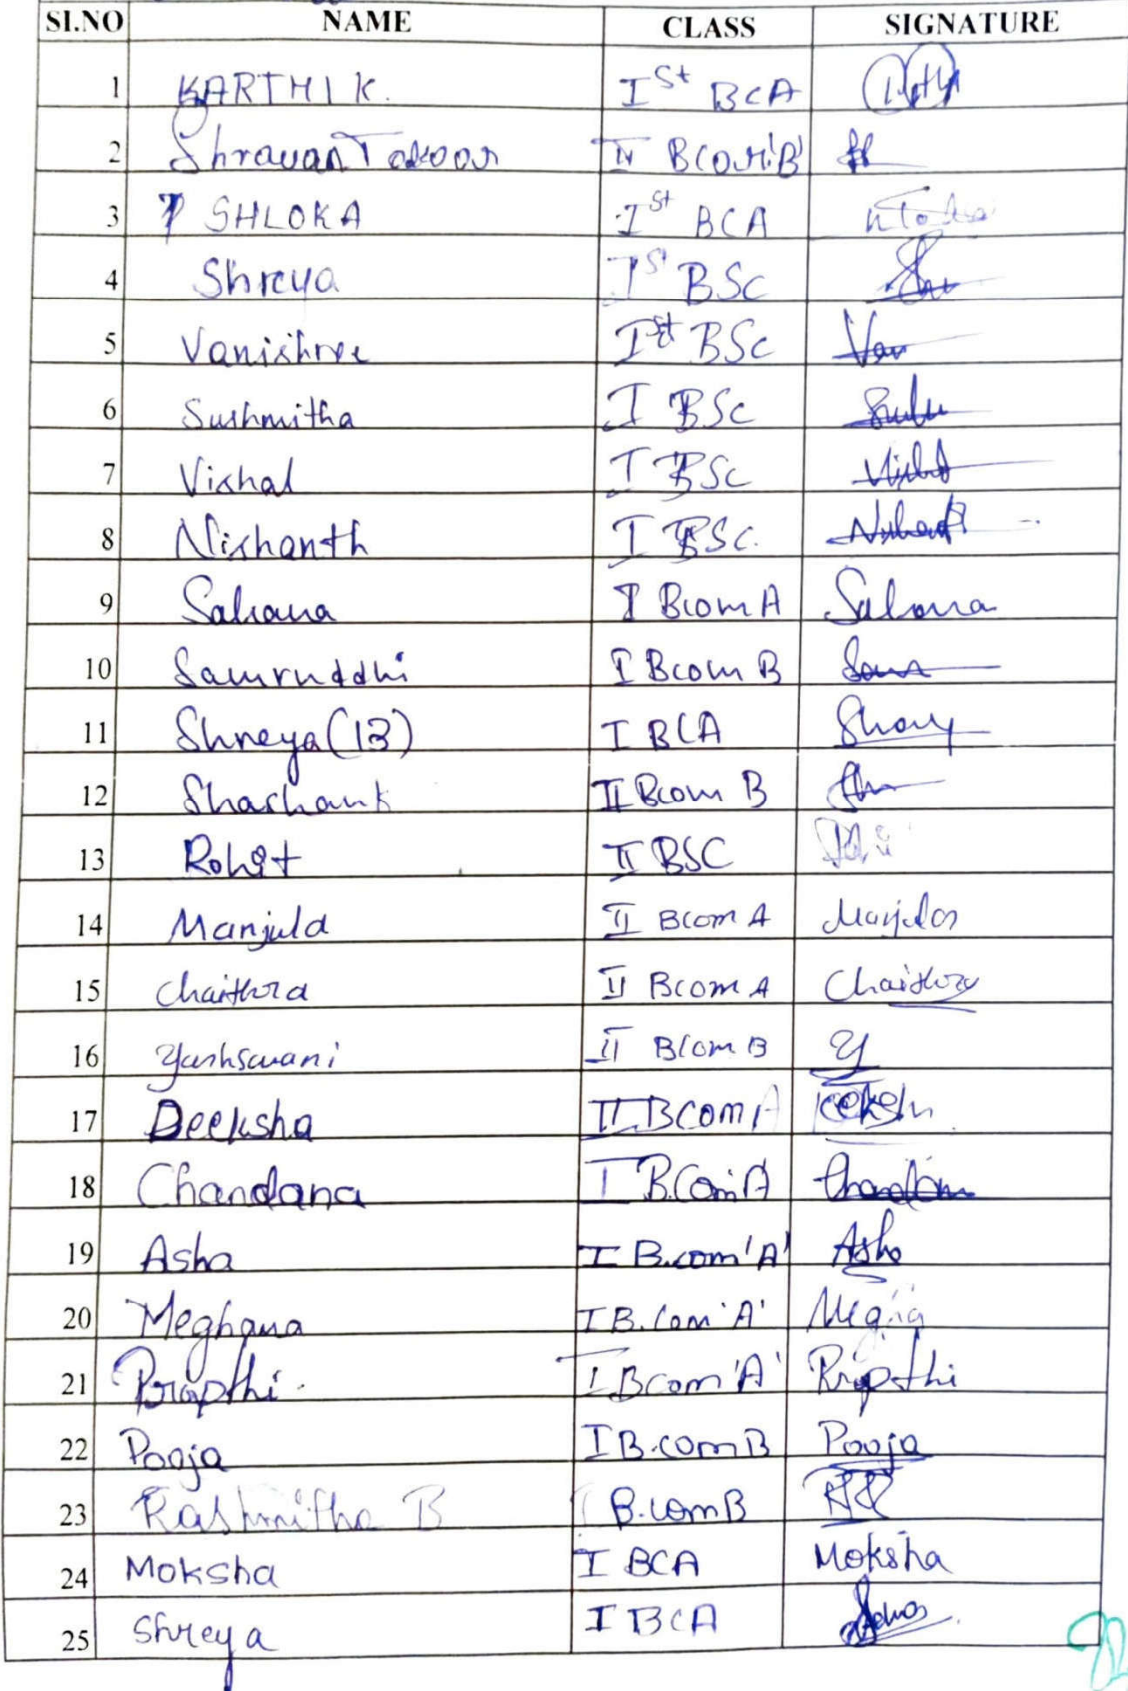 SI.NO NAME CLASS SIGNATURE
1 KARTHIK. I St BCA
2 Shravan Takoor IV BCom 'B'
3 SHLOKA I St BCA
4 Shreya I St BSc
5 Vanishree I st BSc Van
6 Sushmitha I BSc
7 Vishal I BSc Vishal
8 Nishanth I BSc.
9 Sahana I Bcom A Sahana
10 Samruddhi I Bcom B
11 Shreya (13) I BCA
12 Shashank II Bcom B
13 Rohit II BSC
14 Manjula II Bcom A
15 Chaithra II Bcom A Chaithra
16 Yashswani II Bcom B Y
17 Deeksha II BCom A
18 Chandana I B.Com A Chandana
19 Asha I B.com 'A' Asha
20 Meghana I B.Com 'A'
21 Prapthi. I Bcom 'A' Prapthi
22 Pooja I B.com B Pooja
23 Rashmitha B I B.com B
24 Moksha I BCA Moksha
25 Shreya I BCA